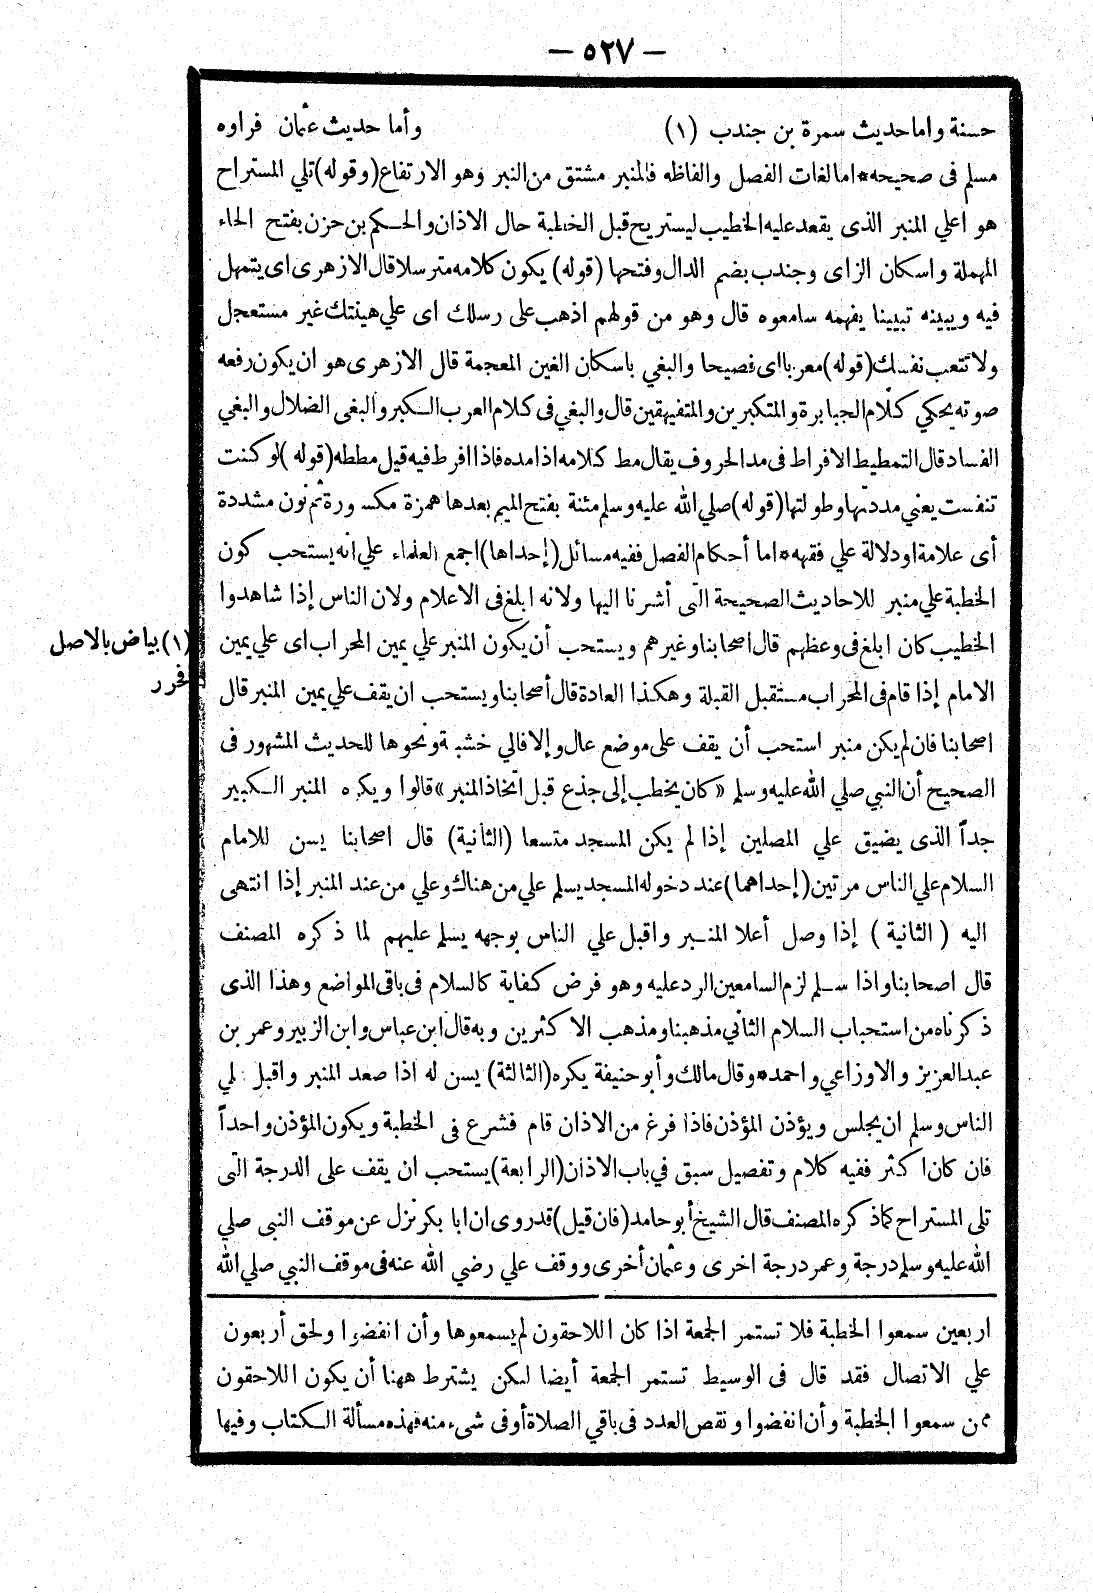 — ٥٢٧ —
حسنة واما حديث سمرة بن جندب (١) وأما حديث عثمان فرواه
مسلم فى صحيحه * اما لغات الفصل والفاظه فالمنبر مشتق من النبر وهو الارتفاع (وقوله) تلي المستراح
هو اعلي المنبر الذى يقعد عليه الخطيب ليستريح قبل الخطبة حال الاذان والحكم بن حزن بفتح الحاء
المهملة واسكان الزاى وجندب بضم الدال وفتحها (قوله) يكون كلامه مترسلا قال الازهرى اى يتمهل
فيه ويبينه تبيينا يفهمه سامعوه قال وهو من قولهم اذهب على رسلك اى علي هينتك غير مستعجل
ولا تتعب نفسك (قوله) معربا اى فصيحا والبغي باسكان الغين المعجمة قال الازهرى هو ان يكون رفعه
صوته يحكي كلام الجبابرة والمتكبرين والمتفيهقين قال والبغي فى كلام العرب الكبر والبغى الضلال والبغي
الفساد قال التمطيط الافراط فى مد الحروف يقال مط كلامه اذا مده فاذا افرط فيه قيل مططه (قوله) لو كنت
تنفست يعني مددتها وطولتها (قوله) صلي الله عليه وسلم مئنة بفتح الميم بعدها همزة مكسورة ثم نون مشددة
أى علامة او دلالة علي فقهه * اما أحكام الفصل ففيه مسائل (إحداها) اجمع العلماء علي انه يستحب كون
الخطبة علي منبر للاحاديث الصحيحة التى أشرنا اليها ولانه ابلغ فى الاعلام ولان الناس إذا شاهدوا
الخطيب كان ابلغ فى وعظهم قال اصحابنا وغيرهم ويستحب أن يكون المنبر علي يمين المحراب اى علي يمين
الامام إذا قام فى المحراب مستقبل القبلة وهكذا العادة قال أصحابنا ويستحب ان يقف علي يمين المنبر قال
اصحابنا فان لم يكن منبر استحب أن يقف على موضع عال وإلا فالي خشبة ونحوها للحديث المشهور فى
الصحيح أن النبي صلي الله عليه وسلم «كان يخطب إلى جذع قبل اتخاذ المنبر» قالوا ويكره المنبر الكبير
جداً الذى يضيق علي المصلين إذا لم يكن المسجد متسعا (الثانية) قال اصحابنا يسن للامام
السلام علي الناس مرتين (إحداهما) عند دخوله المسجد يسلم علي من هناك وعلي من عند المنبر إذا انتهى
اليه (الثانية) إذا وصل أعلا المنبر واقبل علي الناس بوجهه يسلم عليهم لما ذكره المصنف
قال اصحابنا واذا سلم لزم السامعين الرد عليه وهو فرض كفاية كالسلام فى باقى المواضع وهذا الذى
ذكرناه من استحباب السلام الثاني مذهبنا ومذهب الاكثرين وبه قال ابن عباس وابن الزبير وعمر بن
عبد العزيز والاوزاعي واحمد * وقال مالك وأبو حنيفة يكره (الثالثة) يسن له اذا صعد المنبر واقبل لي
الناس وسلم ان يجلس ويؤذن المؤذن فاذا فرغ من الاذان قام فشرع فى الخطبة ويكون المؤذن واحداً
فان كان اكثر ففيه كلام وتفصيل سبق في باب الاذان (الرابعة) يستحب ان يقف على الدرجة التى
تلى المستراح كما ذكره المصنف قال الشيخ أبو حامد (فان قيل) قد روى ان ابا بكر نزل عن موقف النبى صلي
الله عليه وسلم درجة وعمر درجة اخرى وعثمان أخرى ووقف علي رضي الله عنه فى موقف النبي صلي الله
(١) بياض بالاصل
فحرر
اربعين سمعوا الخطبة فلا تستمر الجمعة اذا كان اللاحقون لم يسمعوها وأن انفضوا ولحق أربعون
علي الاتصال فقد قال فى الوسيط تستمر الجمعة أيضا لكن يشترط ههنا أن يكون اللاحقون
ممن سمعوا الخطبة وأن انفضوا ونقص العدد فى باقي الصلاة أو فى شىء منه فهذه مسألة الكتاب وفيها